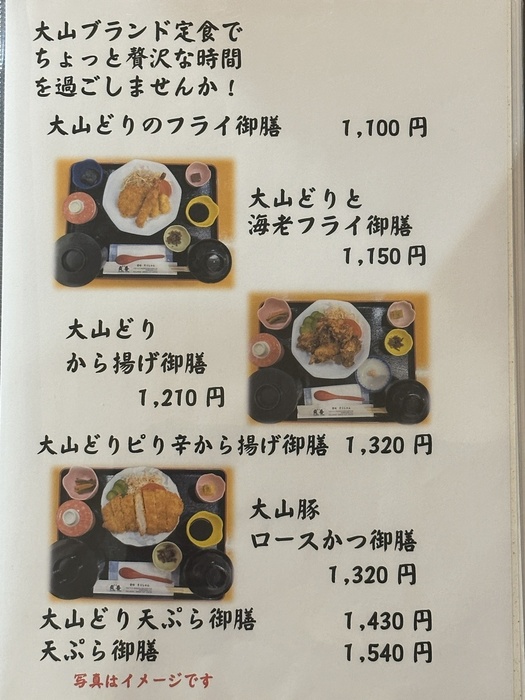 大山ブランド定食で
ちょっと贅沢な時間
を過ごしませんか！
大山どりのフライ御膳 1,100 円
大山どりと
海老フライ御膳
1,150 円
大山どり
から揚げ御膳
1,210 円
大山どりピリ辛から揚げ御膳 1,320 円
大山豚
ロースかつ御膳
1,320 円
大山どり天ぷら御膳 1,430 円
天ぷら御膳 1,540 円
写真はイメージです